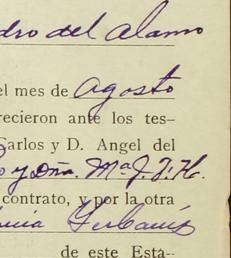 dro del Alamo
el mes de Agosto
recieron ante los tes-
Carlos y D. Angel del
y Dña. Mª J. J. H.
contrato, y por la otra
de este Esta--